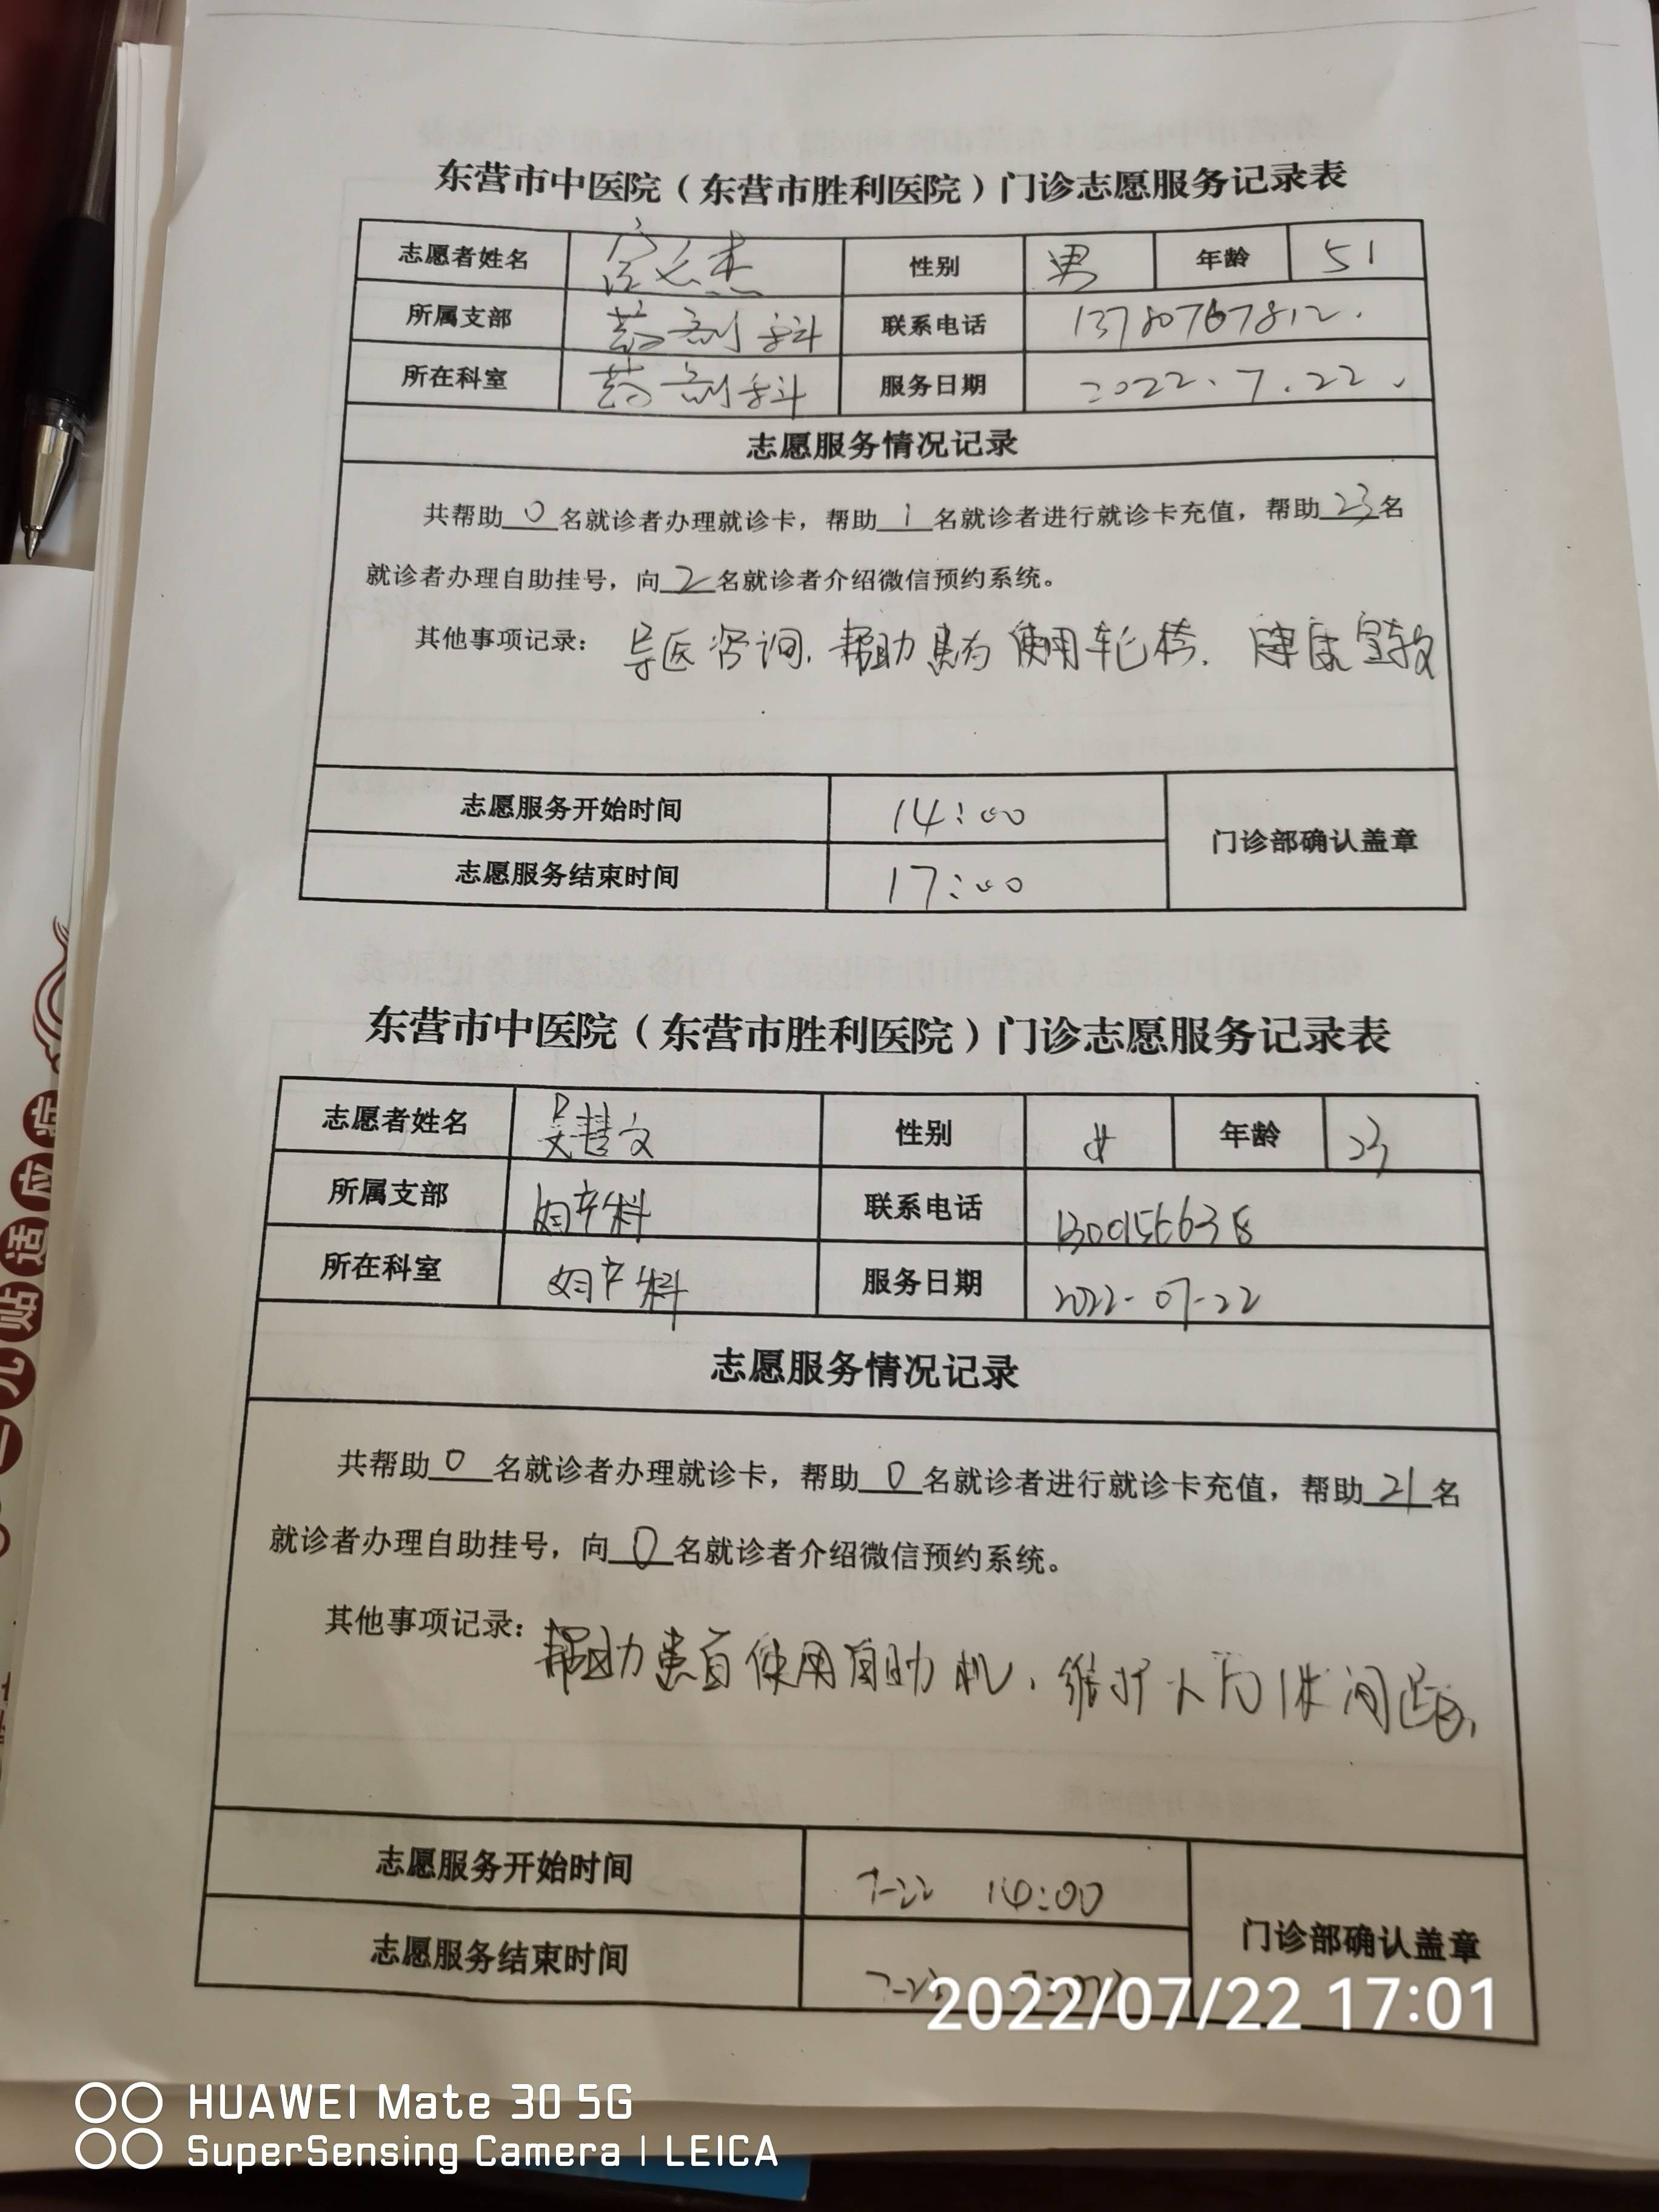 东营市中医院（东营市胜利医院）门诊志愿服务记录表
志愿者姓名 性别 男 年龄 51
所属支部 药剂科 联系电话 13780767812.
所在科室 药剂科 服务日期 2022.7.22.
志愿服务情况记录
共帮助0名就诊者办理就诊卡，帮助1名就诊者进行就诊卡充值，帮助23名
就诊者办理自助挂号，向2名就诊者介绍微信预约系统。
其他事项记录：导医咨询，帮助患者使用轮椅．健康宣教
志愿服务开始时间 14:00
门诊部确认盖章
志愿服务结束时间 17:00
东营市中医院（东营市胜利医院）门诊志愿服务记录表
志愿者姓名 吴慧文 性别 女 年龄 23
所属支部 妇产科 联系电话
所在科室 妇产科 服务日期 2022-07-22
志愿服务情况记录
共帮助0名就诊者办理就诊卡，帮助0名就诊者进行就诊卡充值，帮助21名
就诊者办理自助挂号，向0名就诊者介绍微信预约系统。
其他事项记录：帮助患者使用自助机，维护人与人间距，
志愿服务开始时间 7-22 14:00
门诊部确认盖章
志愿服务结束时间
2022/07/22 17:01
HUAWEI Mate 30 5G
SuperSensing Camera | LEICA
九贴适应症